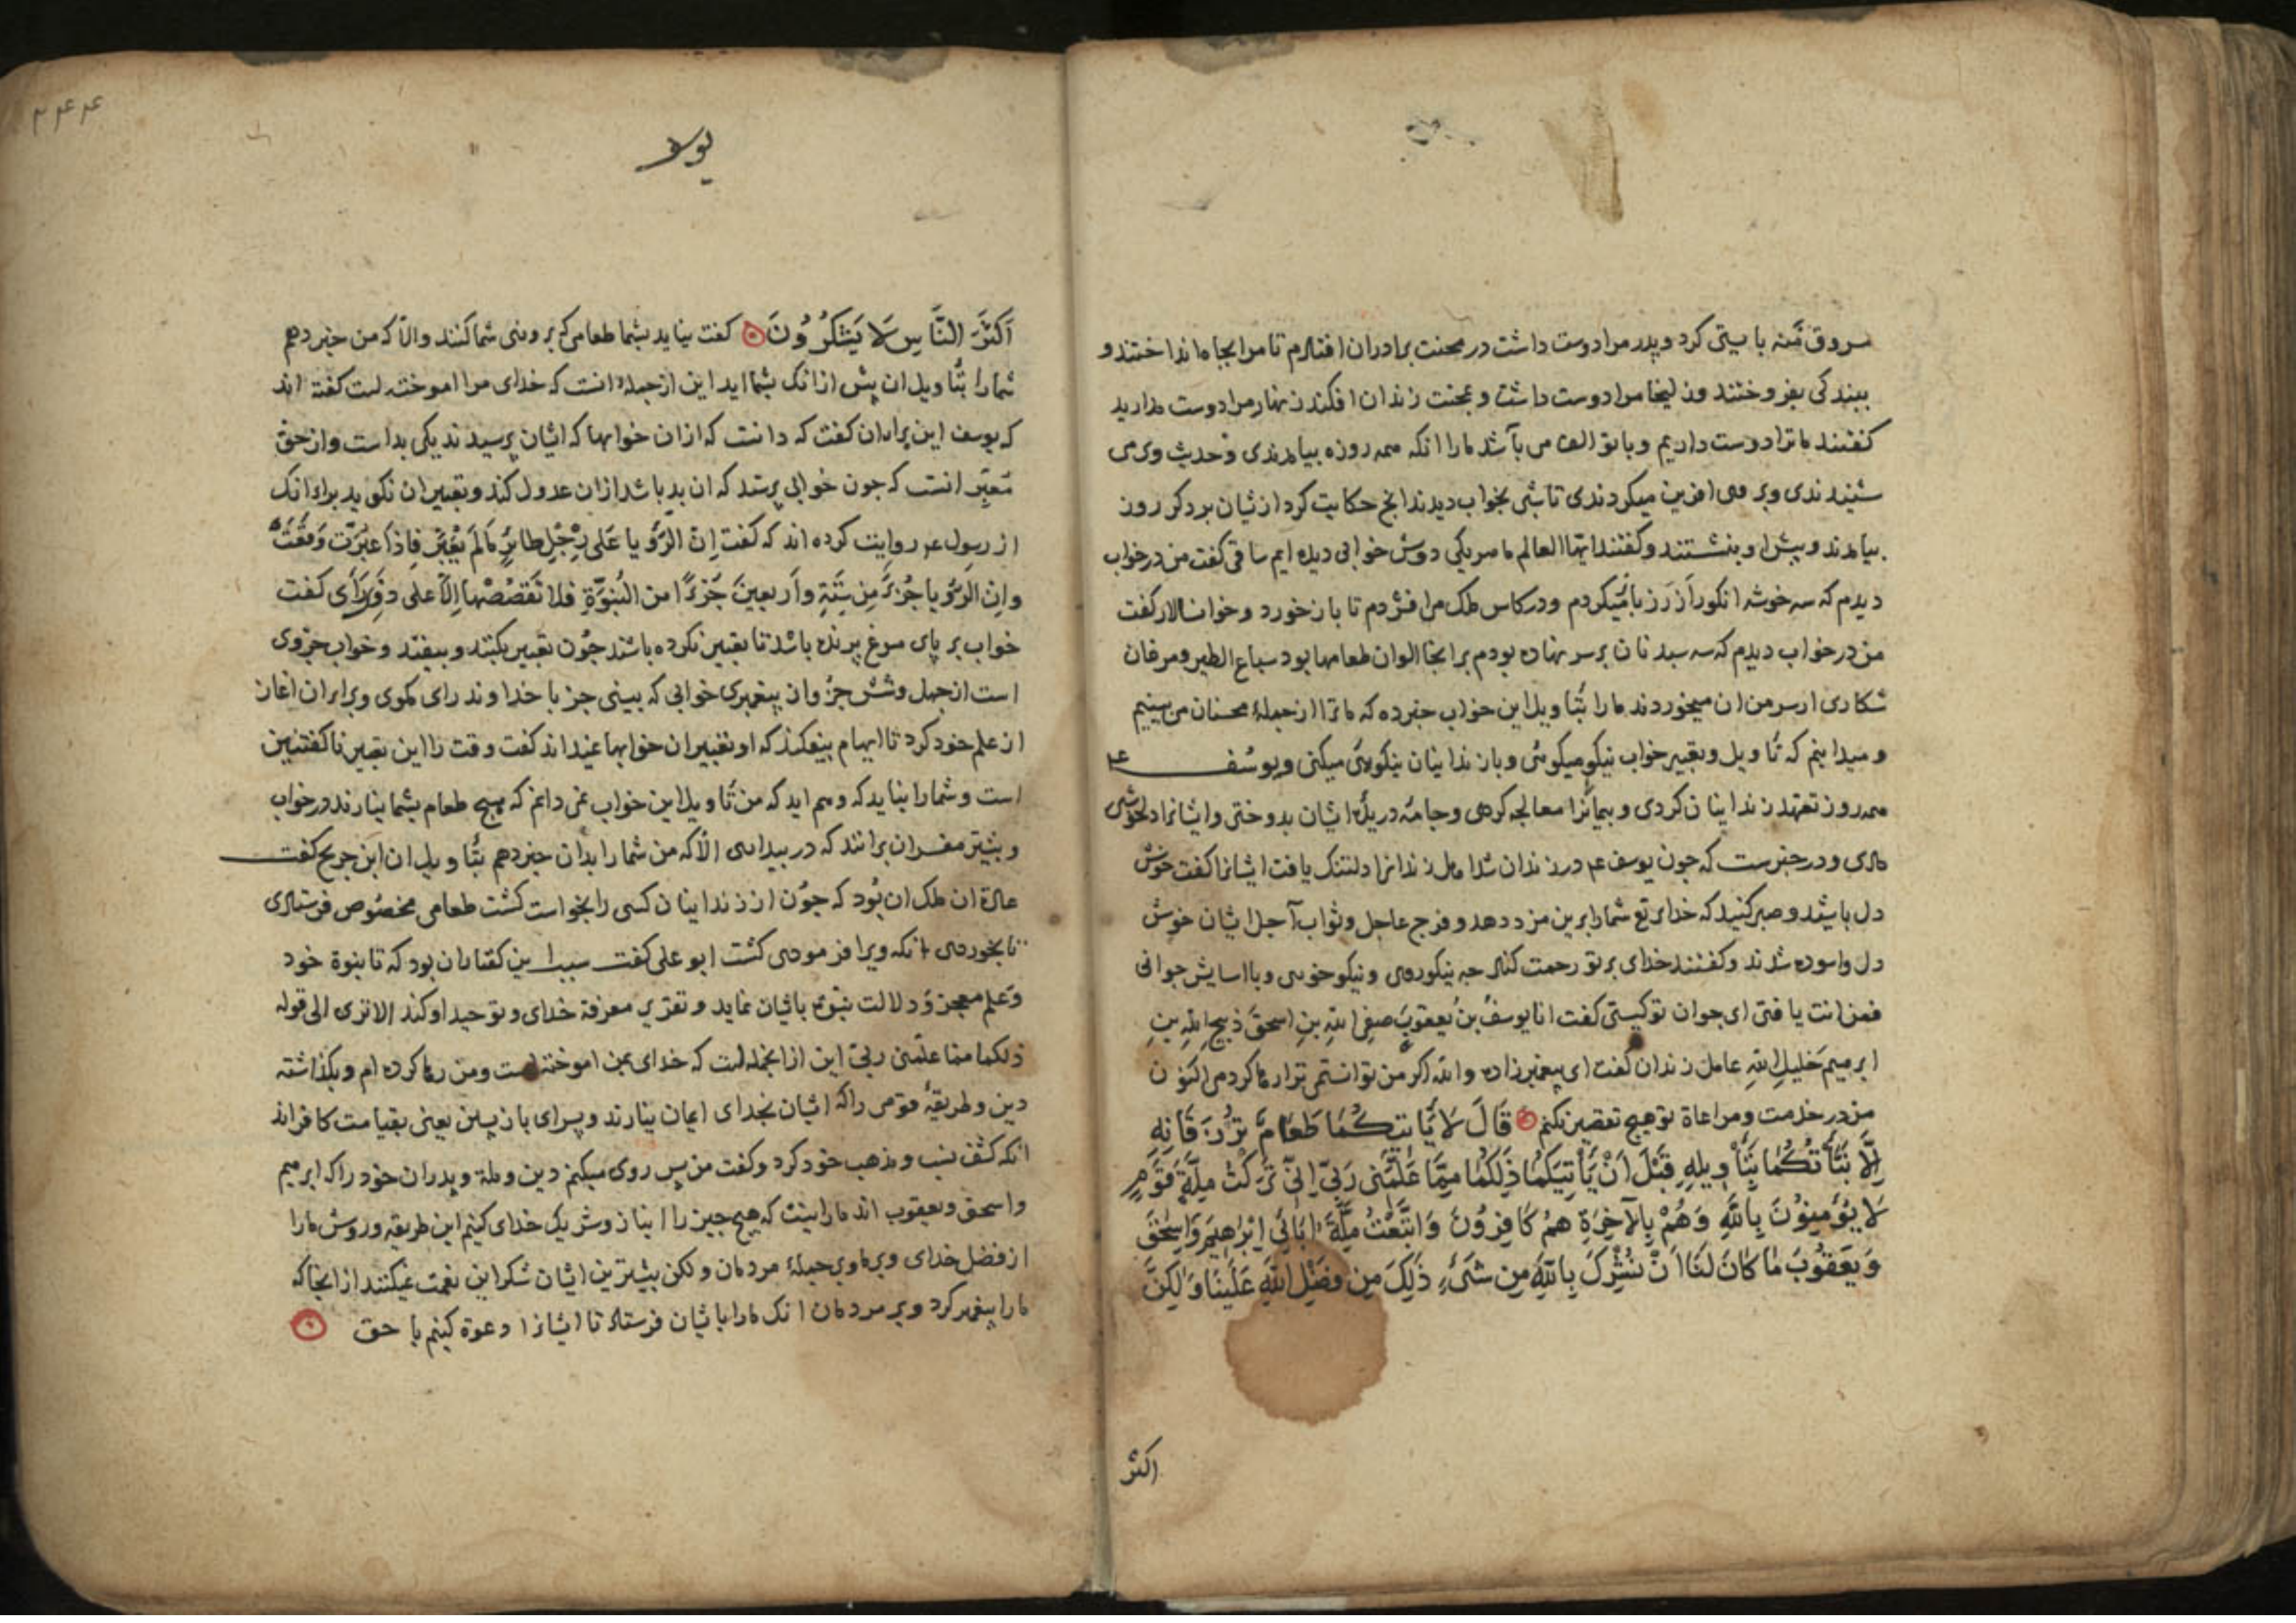 بایستی کرد و پدر مرا دوست داشت در محنت برادران افتادم تا مرا بچاه انداختند و
ببندکی بفروختند و زلیخا مرا دوست داشت و بمحنت زندان افکند زنهار مرا دوست مدارید
کفتند ما ترا دوست داریم و با تو الف می باشد ما را انکه همه روزه بیامدندی و حدیث وی می
شنیدندی و بر وی افرین میکردندی تا شبی بخواب دیدند انج حکایت کرد ازیشان بر دکر روز
بیامدند و پیش او بنشستند و کفتند ایها العالم ما هر یکی دوش خوابی دیده ایم ساقی کفت من در خواب
دیدم که سه خوشه انکور از رز باز میکردم و در کاس ملک می افشردم تا باز خورد و خوان سالار کفت
من در خواب دیدم که سه سبد نان بر سر نهاده بودم بر انجا الوان طعامها بود سباع الطیر و مرغان
شکاری از سر من ان میخوردند ما را بتأویل این خواب خبر ده که ما ترا از جملهٔ محسنان می بینیم
و میدانیم که تأویل و تعبیر خواب نیکو میکوئی و با زندانیان نیکوئی میکنی و یوسف ع
همه روز تعهد زندانیان کردی و بیمانرا معالجه کردی و جامه دریدهٔ ایشان بدوختی و ایشانرا دلخوشی
دادی و در خبرست که چون یوسف ع در زندان شد اهل زندانرا دلتنک یافت ایشانرا کفت خوش
دل باشید و صبر کنید که خدای تع شما را برین مزد دهد و فرج عاجل و ثواب آجل ایشان خوش
دل و اسوده شدند و کفتند خدای بر تو رحمت کناد چه نیکوروی و نیکو خویی و با اسایش جوانی
فمن انت یا فتی ای جوان تو کیستی کفت انا یوسف بن یعقوب صفی الله بن اسحق ذبیح الله بن
ابرهیم خلیل الله عامل زندان کفت ای پیغمبرزاده والله اکر من توانستمی ترا رها کردمی اکنون
من در خدمت و مراعاة تو هیچ تقصیر نکنم قَالَ لَا يَأْتِيكُمَا طَعَامٌ تُرْزَقَانِهِ
إِلَّا نَبَّأْتُكُمَا بِتَأْوِيلِهِ قَبْلَ أَنْ يَأْتِيَكُمَا ذَلِكُمَا مِمَّا عَلَّمَنِي رَبِّي إِنِّي تَرَكْتُ مِلَّةَ قَوْمٍ
لَا يُؤْمِنُونَ بِاللَّهِ وَهُمْ بِالْآخِرَةِ هُمْ كَافِرُونَ وَاتَّبَعْتُ مِلَّةَ آبَائِي إِبْرَاهِيمَ وَإِسْحَقَ
وَيَعْقُوبَ مَا كَانَ لَنَا أَنْ نُشْرِكَ بِاللَّهِ مِنْ شَيْءٍ ذَلِكَ مِنْ فَضْلِ اللَّهِ عَلَيْنَا وَلَكِنَّ
اکثر
۲۴۴
یوسف
أَكْثَرَ النَّاسِ لَا يَشْكُرُونَ کفت نیاید بشما طعامی که بروزی شما کنند والا که من خبر دهم
شما را بتأویل ان پیش از انک بشما اید این از جمله انست که خدای مرا اموخته است کفته اند
که یوسف این برای ان کفت که دانست که از ان خوابها که ایشان پرسیدند یکی بد است و از حق
معبّر انست که چون خوابی پرسند که ان بد باشد از ان عدول کند و تعبیر ان نکوید برای انک
از رسول ع روایت کرده اند که کفت ان الرؤیا علی رجل طائر مالم یعبر فاذا عبرت وقعت
وان الرؤیا جزء من ستة واربعین جزءا من النبوة فلا تقصصها الا علی ذی رأی کفت
خواب بر پای مرغ پرنده باشد تا تعبیر نکرده باشند چون تعبیر بکنند و بیفتد و خواب جزوی
است از جهل و شش جزو ان پیغمبری خوابی که بینی جز با خداوند رای مکوی و برای ان اغاز
از علم خود کرد تا ایهام بیفکند که او تعبیر ان خوابها نمیداند کفت وقت را این تعبیر ناکفتنین
است و شما را نباید که وهم اید که من تأویل این خواب نمی دانم که هیچ طعام بشما نیارند در خواب
و بیشتر مفسران برانند که در بیداری الا که من شما را بدان خبر دهم بتأویل ان ابن جریح کفت
عادة ان ملک ان بود که چون از زندانیان کسی را بخواست کشت طعامی مخصوص فرستادی
تا بخوردی انکه ویرا فرمودی کشت ابو علی کفت سبب این کفتار ان بود که تا نبوة خود
و علم معجز و دلالت نبوة باشان نماید و تقریر معرفة خدای و توحید او کند الا تری الی قوله
ذلکما مما علّمنی ربّی این از انجمله است که خدای بمن اموخته است و من رها کرده ام و بکذاشته
دین و طریقهٔ قومی را که ایشان بخدای ایمان نیارند و بسرای بازپسین یعنی بقیامت کافراند
انکه کشف نسب و مذهب خود کرد و کفت من پس روی میکنم دین و ملة و پدران خود را که ابرهیم
و اسحق و یعقوب اند ما را نیست که هیچ چیز را انباز و شریک خدای کنیم این طریقه و روش ما را
از فضل خدای و بر ما و بر جملهٔ مردمان و لکن بیشترین ایشان شکر این نعمت نمیکنند از انجا که
ما را پیغمبر کرد و بر مردمان انک ما را باشان فرستاد تا ایشانرا دعوة کنیم با حق